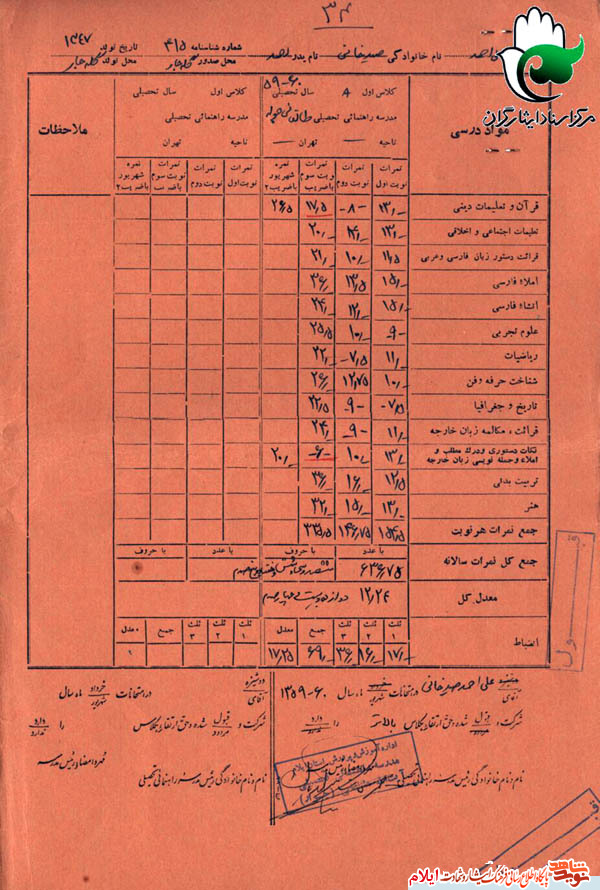 ۳۴
نام خانوادگی صدرخانی نام پدر احمد شماره شناسنامه ۴۱۵ تاریخ تولد ۱۳۴۷
محل صدور محل تولد
مرکز اسناد ایثارگران
مواد درسی
کلاس اول ۴ سال تحصیلی ۶۰-۵۹
مدرسه راهنمائی تحصیلی
ناحیه — تهران —
کلاس اول سال تحصیلی
مدرسه راهنمائی تحصیلی
ناحیه تهران
ملاحظات
نمرات نوبت اول نمرات نوبت دوم نمرات نوبت سوم باضریب نمره شهریور باضریب ۲ نمرات نوبت اول نمرات نوبت دوم نمرات نوبت سوم باضریب نمره شهریور باضریب ۲
قرآن و تعلیمات دینی ۱۳/- -۸- ۱۷/۵ ۲۶/۵
تعلیمات اجتماعی و اخلاقی ۱۳/- ۲۰/-
قرائت دستور زبان فارسی و عربی ۱۱/۵ ۱۰/- ۲۱/-
املاء فارسی ۱۵/- ۱۳/۵ ۳۶/-
انشاء فارسی ۱۵/- ۱۲/- ۲۴/-
علوم تجربی -۹ ۱۰/- ۲۵/۵
ریاضیات ۱۱/- -۷/۵ ۲۲/-
شناخت حرفه وفن ۱۰/- ۱۲/۷۵ ۲۶/-
تاریخ و جغرافیا -۷/۵ -۹ ۲۲/۵
قرائت، مکالمه زبان خارجه ۱۱/- -۹ ۲۴/-
نکات دستوری و درک مطلب و املاء وجمله نویسی زبان خارجه ۱۳/- ۱۰/- -۶ ۲۰/-
تربیت بدنی ۱۲/۵ ۱۶/-
هنر ۱۳/- ۱۵/- ۳۲/-
جمع نمرات هر نوبت ۱۵۴/۵ ۱۴۶/۷۵ ۳۳۵/۵
جمع کل نمرات سالانه با عدد ۶۳۶/۷۵ با حروف با عدد با حروف
معدل کل ۱۲/۲۴
انضباط ثلث ۱ ثلث ۲ ثلث ۳ جمع معدل ثلث ۱ ثلث ۲ ثلث ۳ جمع معدل
۱۷/- ۱۶/- ۳۶/- ۶۹/- ۱۷/۲۵
دوشیزه آقای علی احمد صدرخانی در امتحانات خرداد شهریور ماه سال ۶۰-۱۳۵۹
شرکت و قبول مردود شده و حق ارتقاء بکلاس بالاتر دارد ندارد را
نام و نام خانوادگی رئیس مدرسه راهنمائی تحصیلی
دوشیزه آقای در امتحانات خرداد شهریور ماه سال
شرکت و قبول مردود شده و حق ارتقاء بکلاس را دارد ندارد
مهر و امضاء رئیس مدرسه
نام و نام خانوادگی رئیس مدرسه راهنمائی تحصیلی
اداره آموزش و پرورش استان ایلام
نوید شاهد پایگاه اطلاع رسانی فرهنگ ایثار و شهادت ایلام